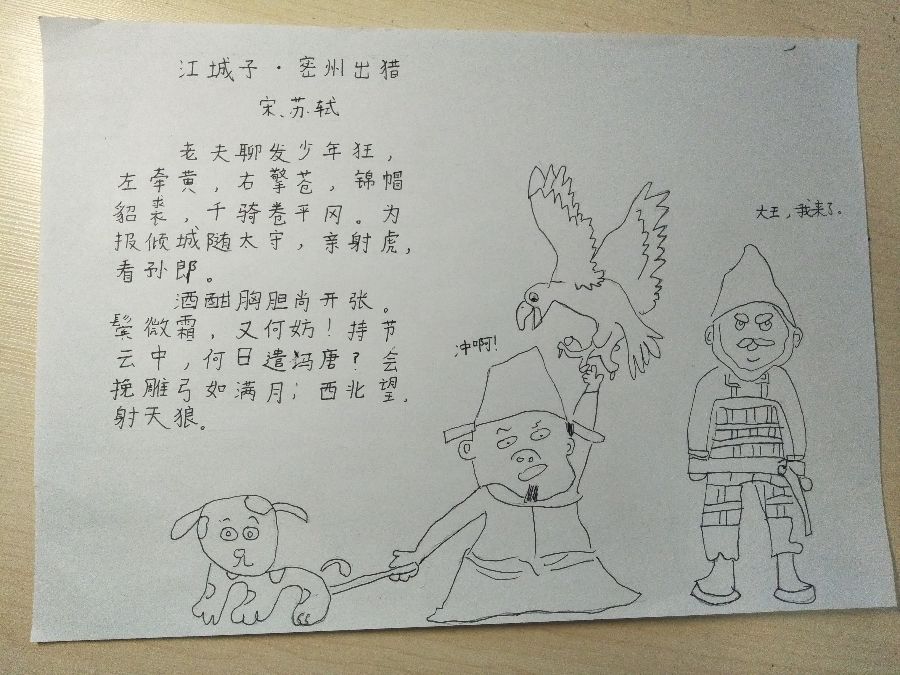 江城子·密州出猎
宋、苏轼
老夫聊发少年狂，
左牵黄，右擎苍，锦帽
貂裘，千骑卷平冈。为
报倾城随太守，亲射虎，
看孙郎。
酒酣胸胆尚开张。
鬓微霜，又何妨！持节
云中，何日遣冯唐？会
挽雕弓如满月；西北望，
射天狼。
冲啊！
大王，我来了。